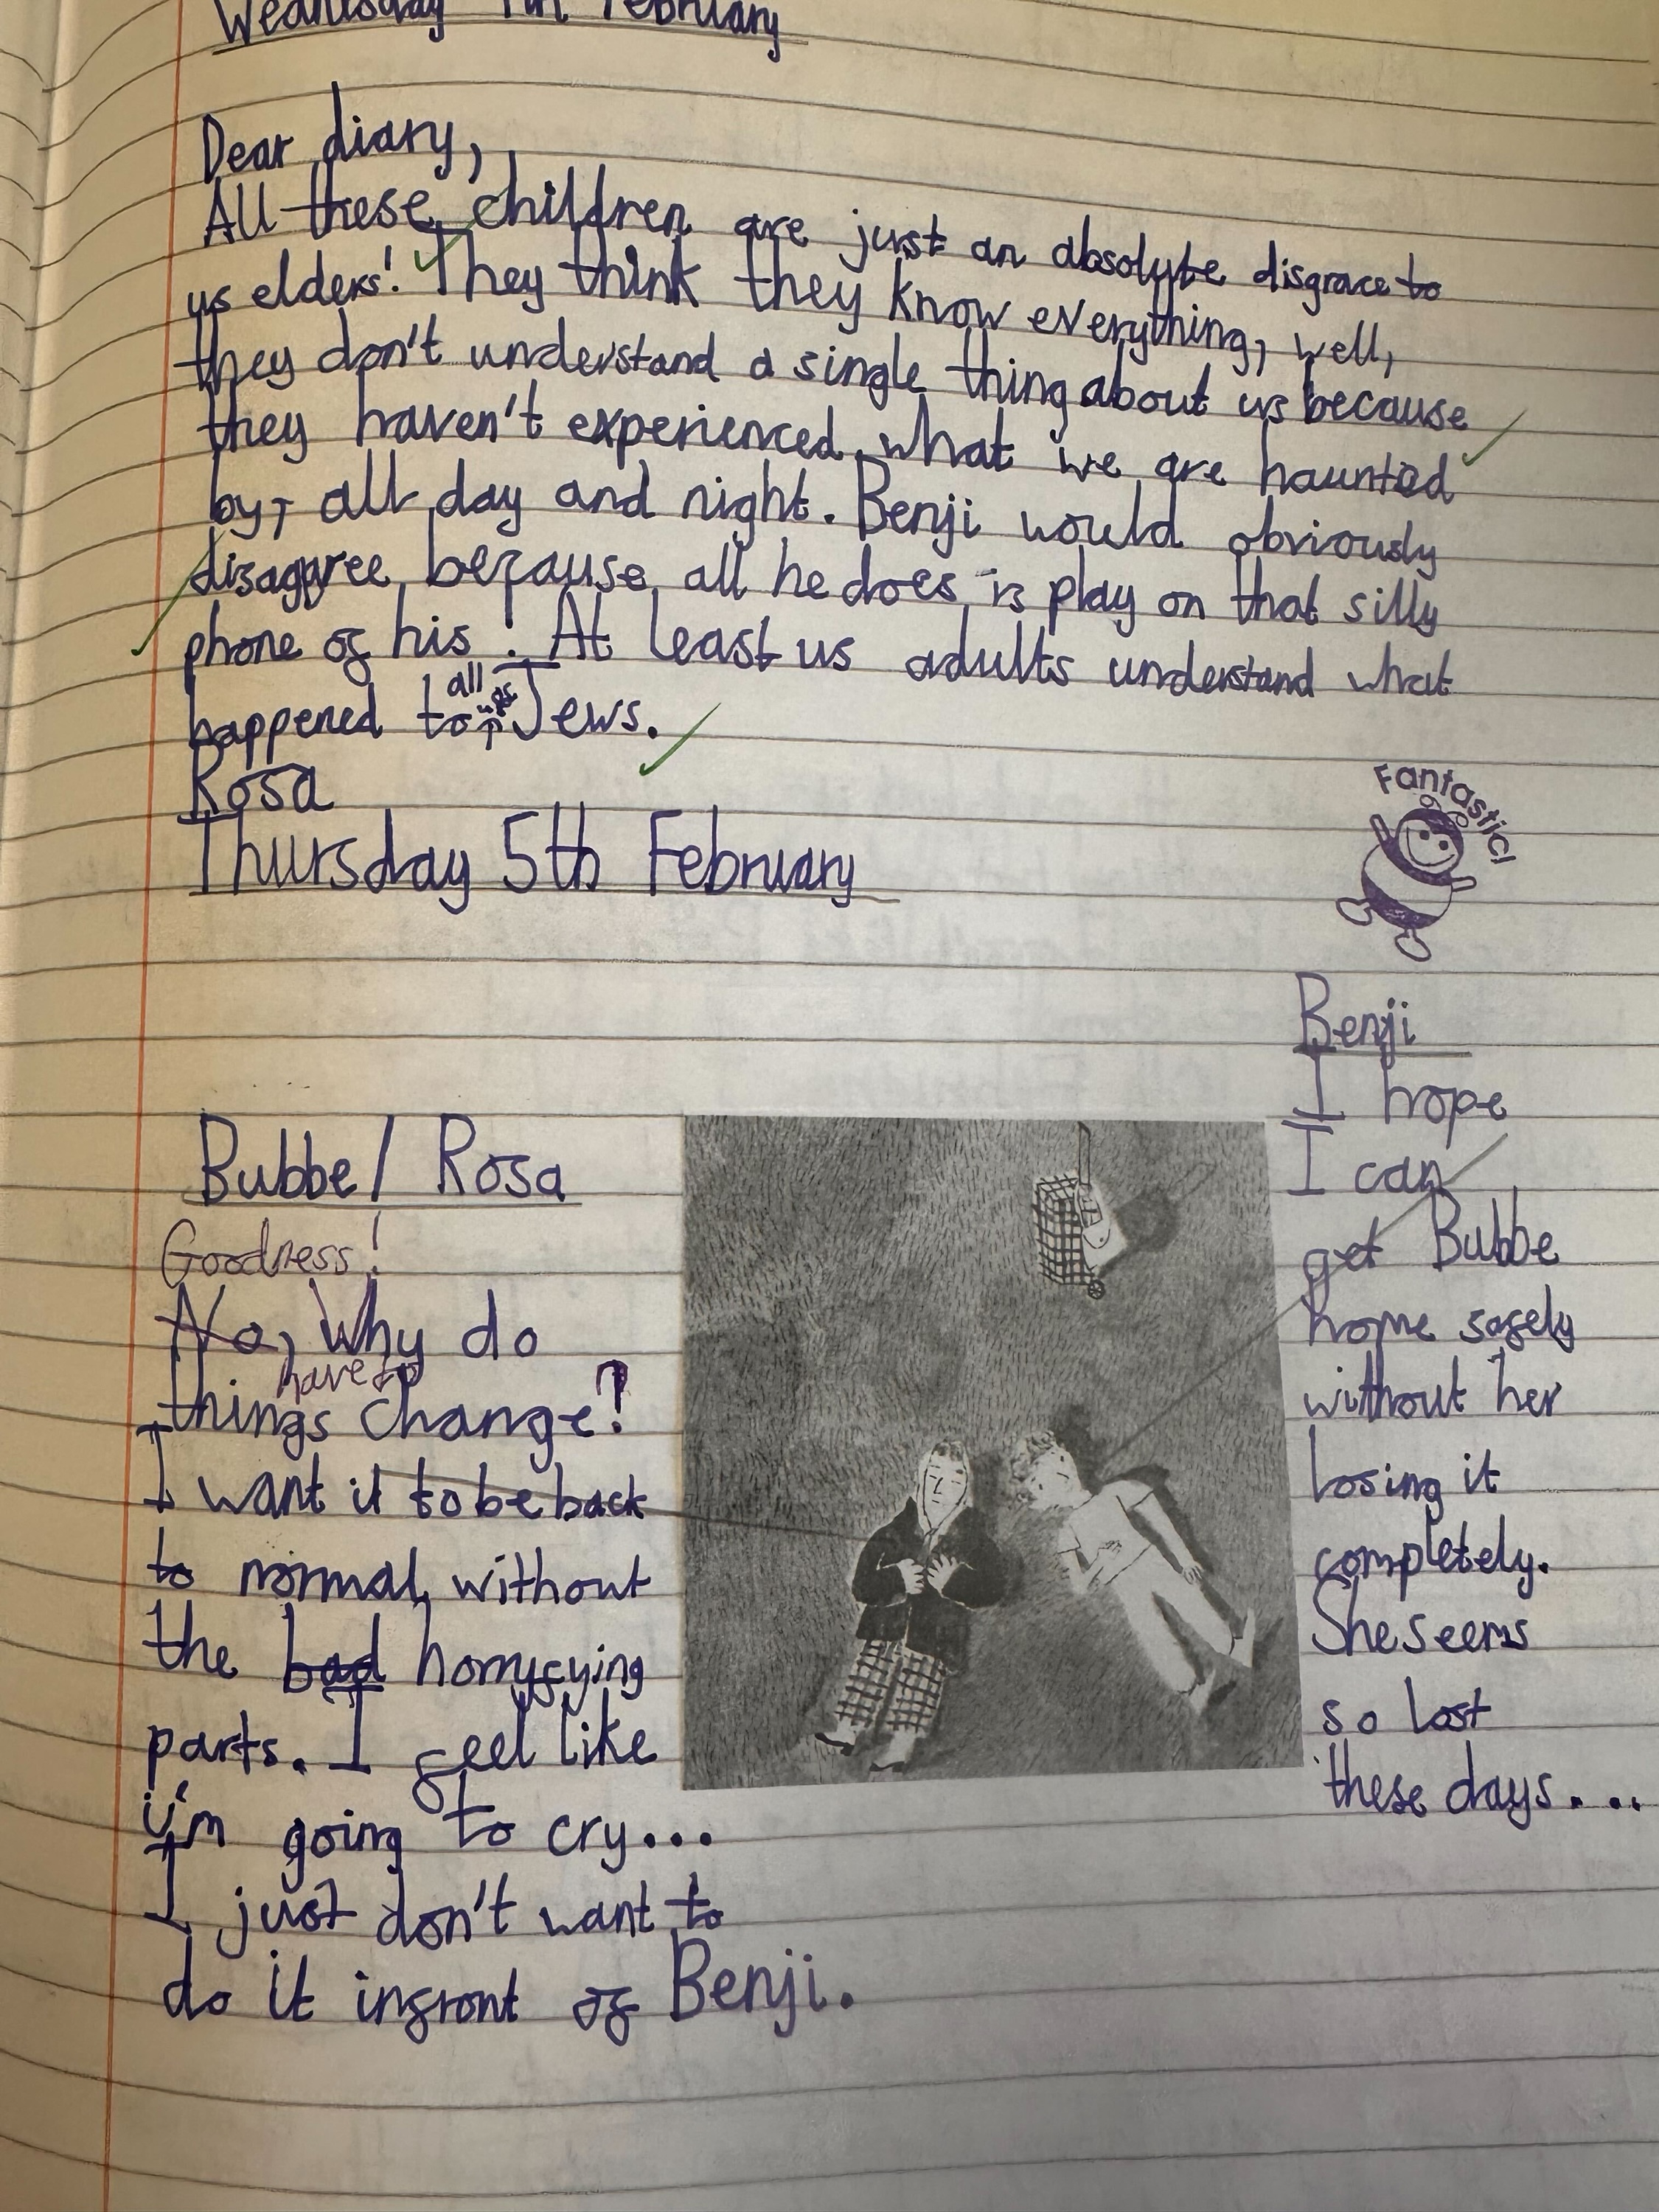 Wednesday 4th February
Dear diary,
All these children are just an absolute disgrace to
us elders! They think they know everything, well,
they don't understand a single thing about us because
they haven't experienced what we are haunted
by, all day and night. Benji would obviously
disagree because all he does is play on that silly
phone of his! At least us adults understand what
happened to all us Jews.
Rosa
Fantastic!
Thursday 5th February
Bubbe/ Rosa
Goodness!
No, Why do
things have to change?
I want it to be back
to normal, without
the bad horryfying
parts. I feel like
i'm going to cry...
I just don't want to
do it infront of Benji.
Benji
I hope
I can
get Bubbe
home safely
without her
losing it
completely.
She seems
so lost
these days....